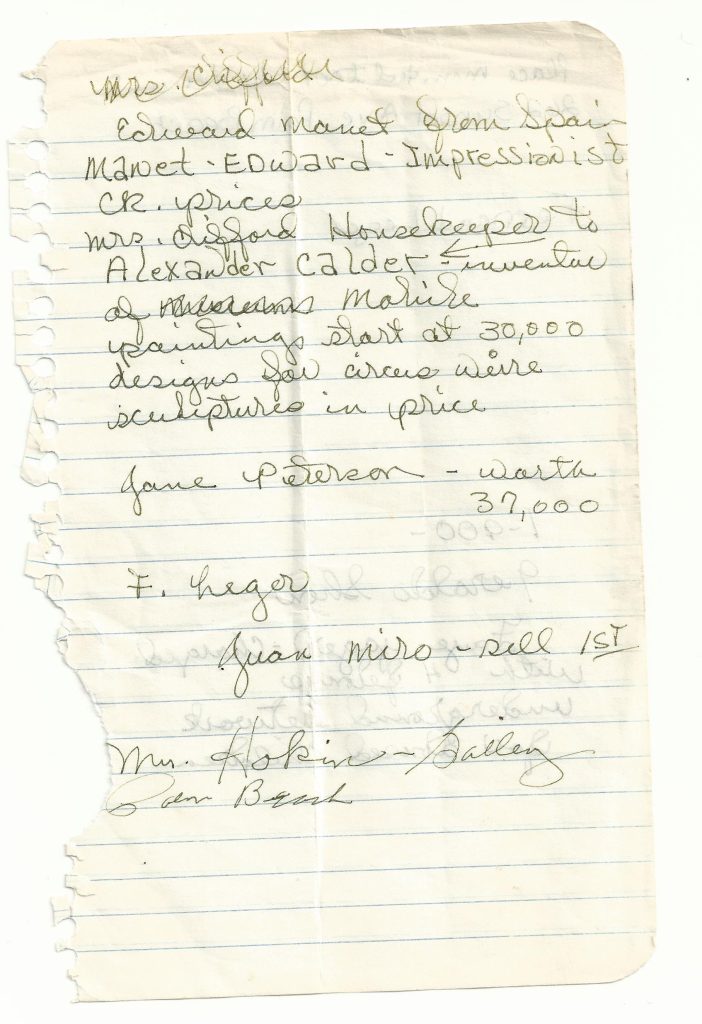 Mrs. Clifford
Edward Manet from Spain
Manet - EDward - Impressionist
CK. prices
Mrs. Clifford Housekeeper to
Alexander Calder - inventor
of Mobile
paintings start at 30,000
designs for circus were
sculptures in price
Jane Peterson - worth
37,000
F. Leger
Juan Miro - sell 1ST
Hokin - Gallery
Palm Beach